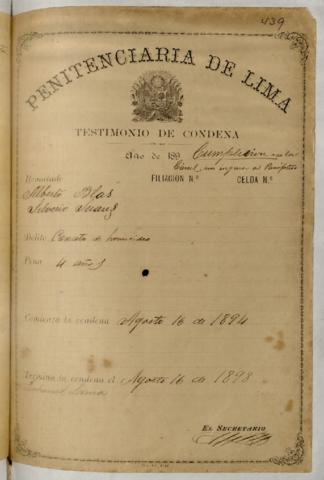 439
PENITENCIARIA DE LIMA
TESTIMONIO DE CONDENA
Año de 189 Cumplieron en la
Cárcel, sin
Rematado FILIACION N.º CELDA N.º
Alberto Blas
Silverio Suarez
Delito Conato de homicidio
Pena 4 años
Comienza la condena Agosto 16 de 1894
Termina la condena el Agosto 16 de 1898
EL SECRETARIO